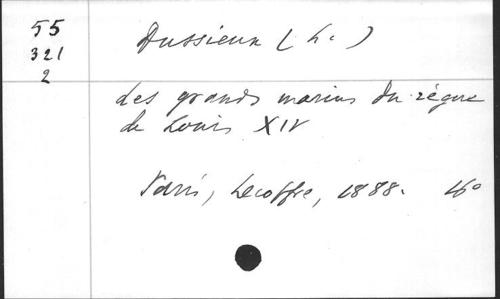 55
321
2
Dussieux (L.)
Les grands marins du règne
de Louis XIV
Paris, Lecoffre, 1888. 16°